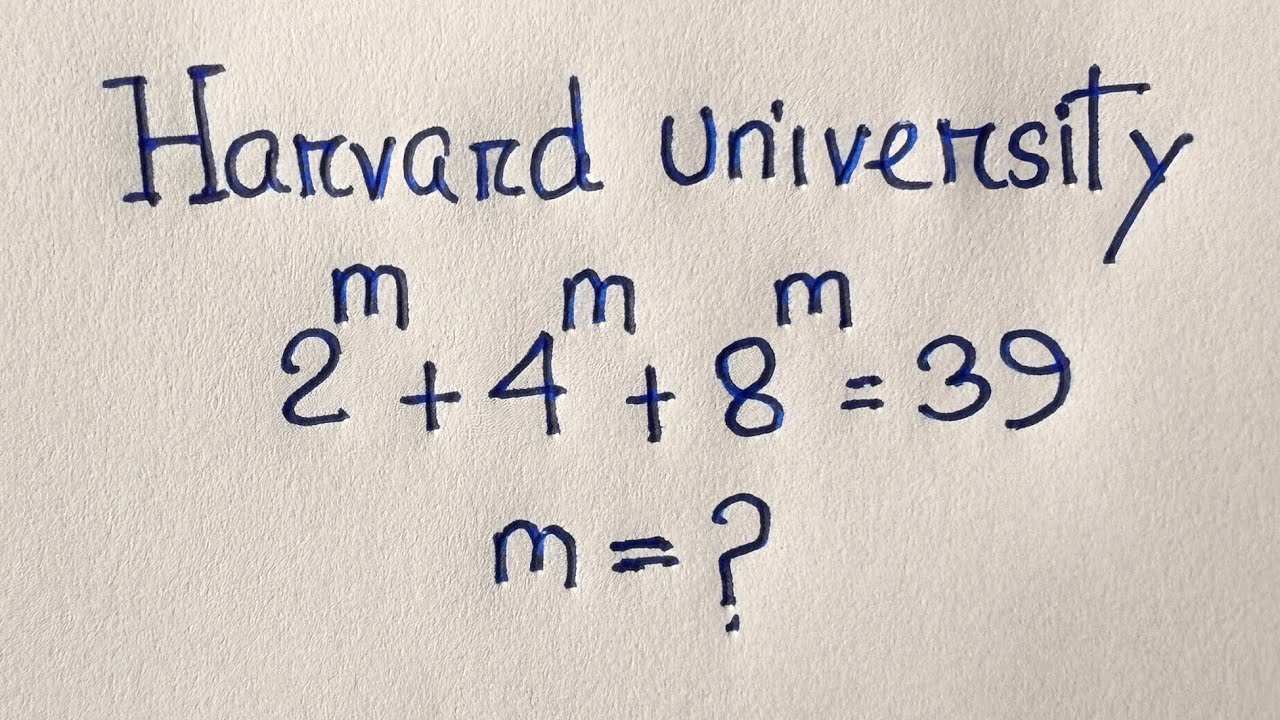 Harvard university
2^m + 4^m + 8^m = 39
m = ?